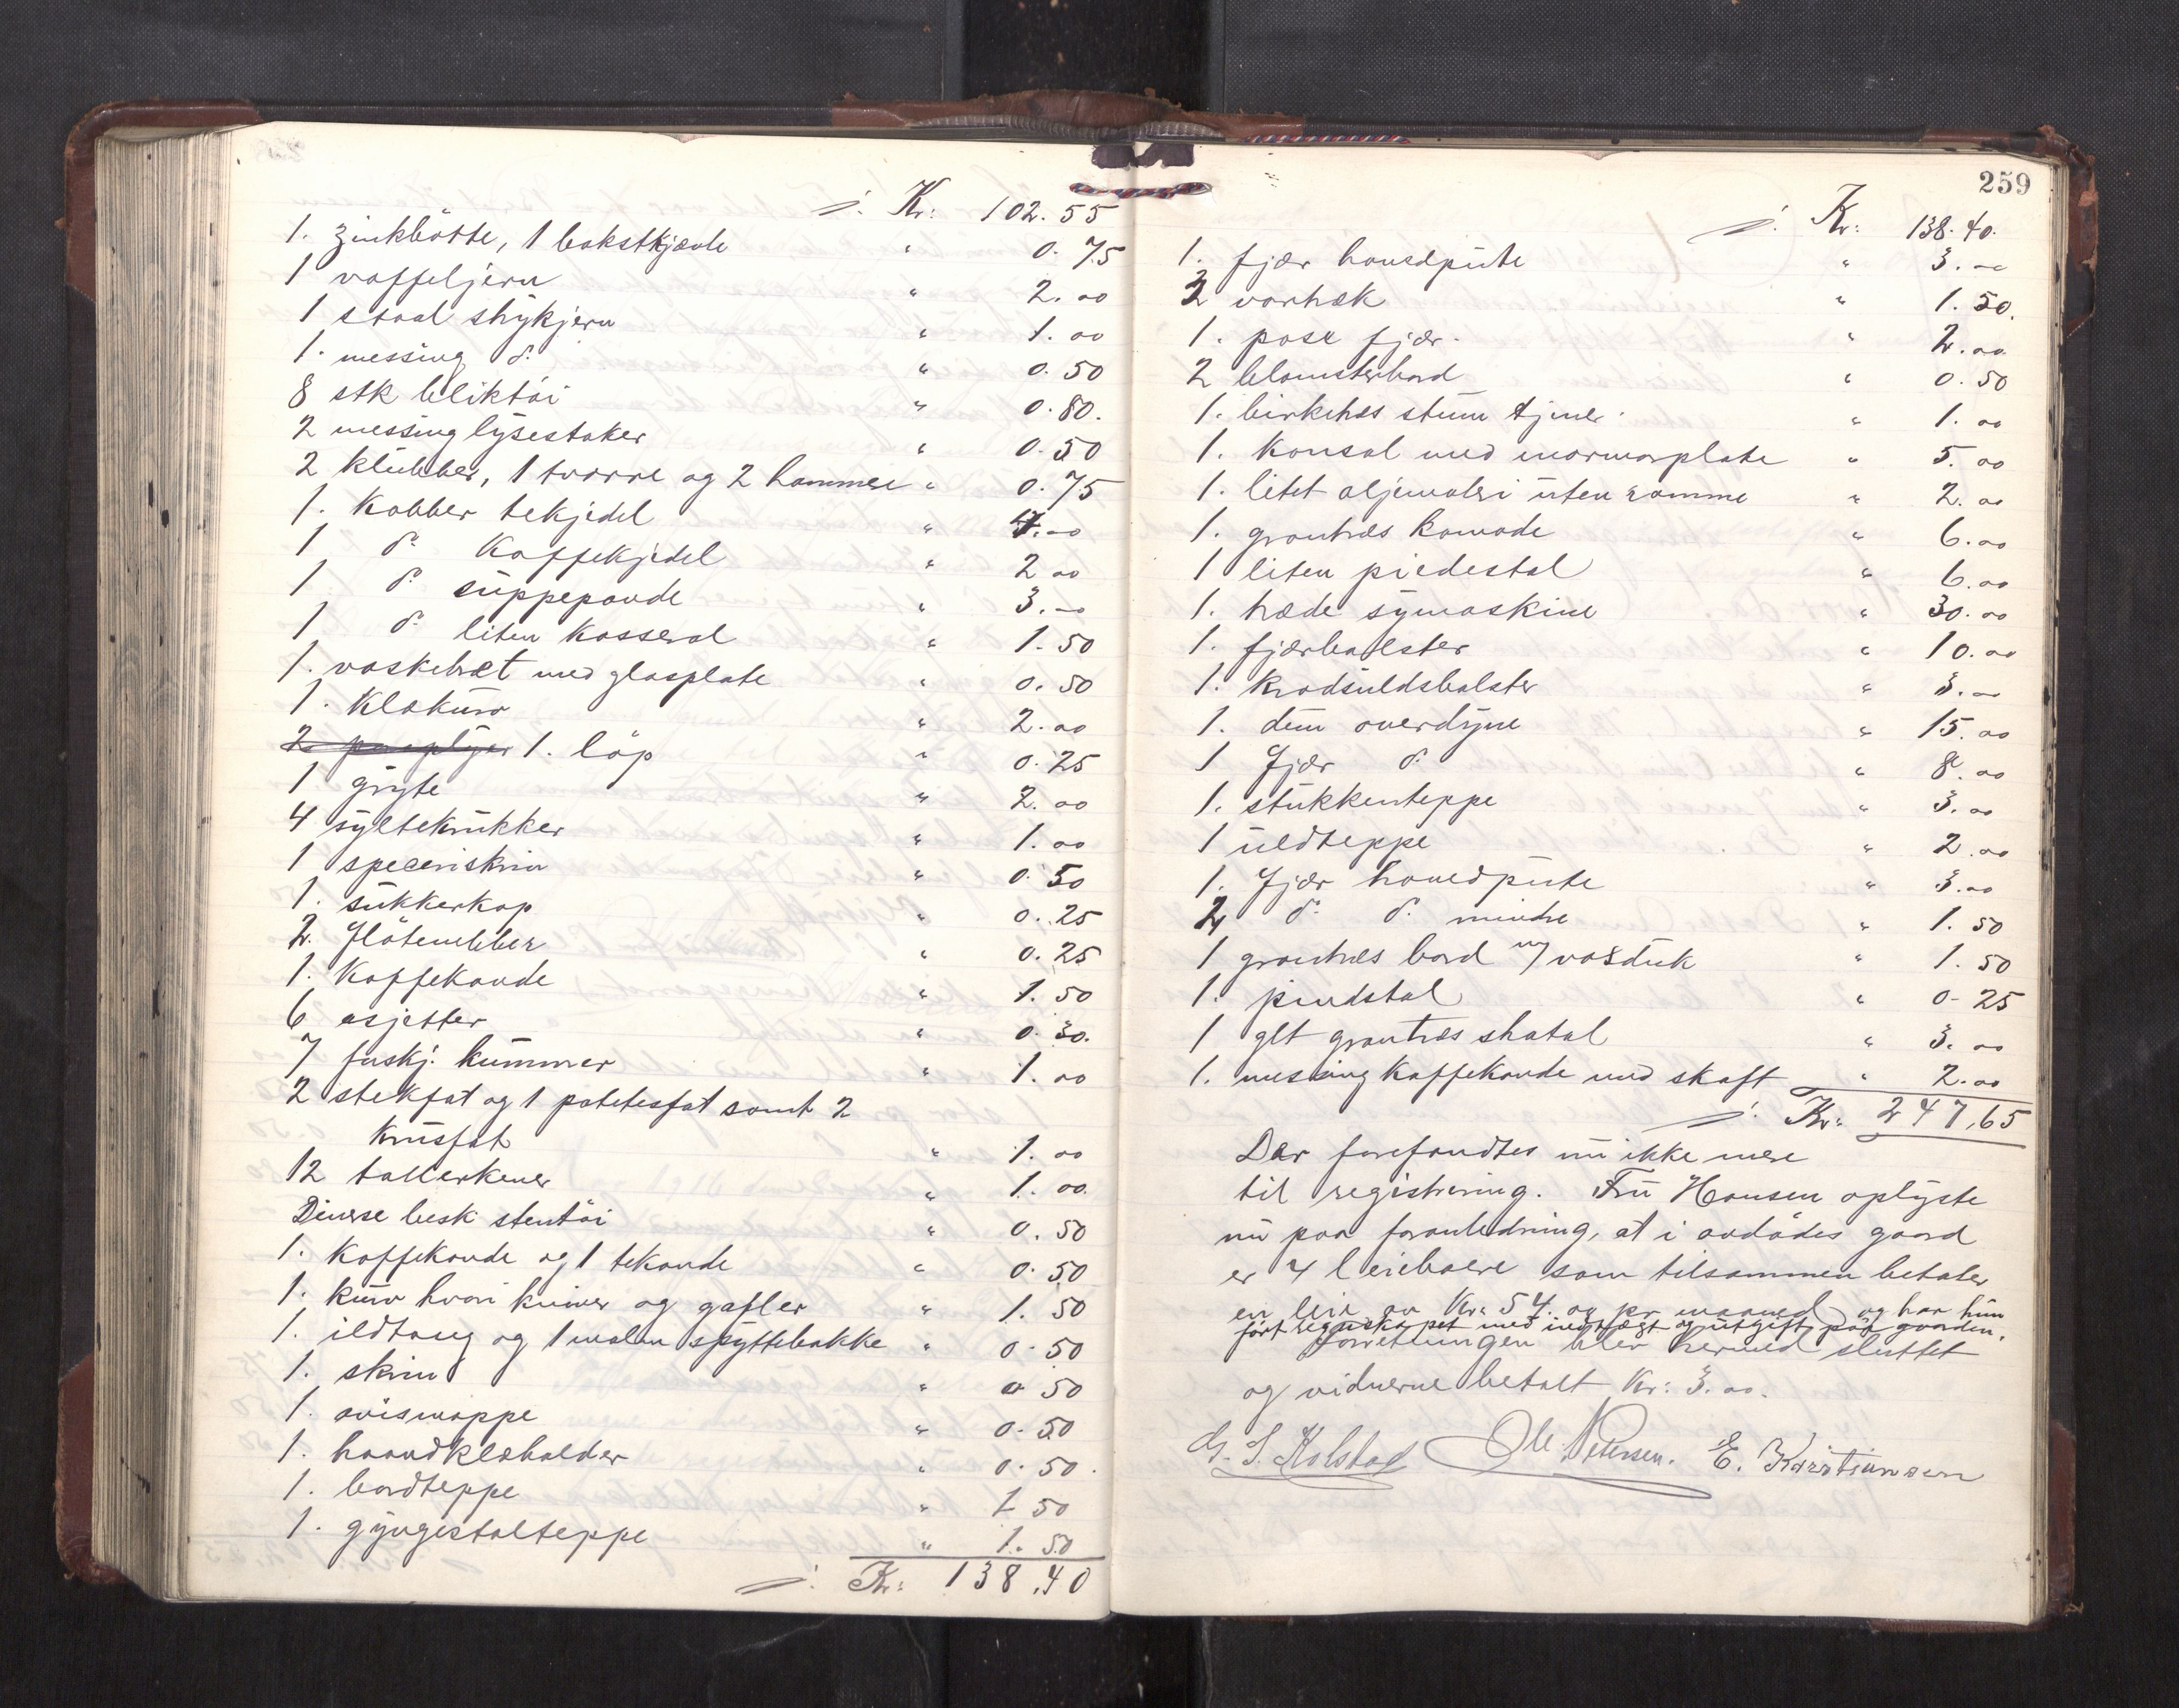 ./. Kr: 102.55
1. zinkbötte, 1 bakstkjævle " 0.75
1 vaffeljern " 2.00
1 staal strykjern " 1.00
1. messing do. " 0.50
8 stk bliktöi " 0.80.
2 messing lysestaker " 0.50
2 klubber, 1 tvarre og 2 hammere " 0.75
1. Kobber tekjedel " 4.00
1 do. Kaffekjedel " 2 00
1 do. suppepande " 3.00
1 do. liten Kasserol " 1.50
1. vaskebret med glasplate " 0.50
1. Klækurv " 2.00
1. löp " 0.25
1 gryte " 2.00
4 syltekrukker " 1.00
1 speceriskrin " 0.50
1. sukkerkop " 0.25
2. flötemugger " 0.25
1. Kaffekande " 1.50
6 asjetter " 0.30.
7 forskj. kummer " 1.00
2 stekfat og 1 potetesfat samt 2
krusfat " 1.00
12 tallerkener " 1.00
Diverse besk. stentöi " 0.50
1. Kaffekande og 1 tekande " 0.50
1. kurv hvori kniver og gafler " 1.50
1. ildtang og 1 malm spyttebakke " 0.50
1. skrin " 0 50
1. avismappe " 0.50
1. haandklæholder " 0.50.
1. bordteppe " 1 50
1. gyngestolteppe " 1.50
./. Kr: 138.40
259
./. Kr: 138.40.
1. fjær hovedpute " 3.00
2 vartræk " 1.50.
1. pose fjær. " 2.00
2 blomsterbord " 0.50
1. birketræs stum tjener. " 1.00
1. Konsol med marmorplate " 5.00
1. litet oljemaleri uten ramme " 2.00
1. grantræs komode " 6.00
1 liten piedestal " 6.00
1. træde symaskine " 30.00
1. fjærbolster " 10.00
1. Kradsuldsbolster " 3.00
1. dun overdyne " 15.00
1 fjær do. " 8.00
1. stukkenteppe " 3.00
1 uldteppe " 2.00
1. fjær hovedpute " 3.00
2 do. do. mindre " 1.50
1 grantræs bord m/ voksduk " 1.50
1. pindstol " 0.25
1 glt grantræs shatol " 3.00
1. messing Kaffekande med skaft " 2.00
./. Kr: 247,65
Der forefandtes nu ikke mere
til registrering. Fru Hansen oplyste
nu paa foranledning, at i avdödes gaard
er 4 leieboere som tilsammen betaler
en leie av Kr: 54.00 pr maaned og har hun
fört regnskapet med indtægt og utgift paa gaarden.
Forretningen blev hermed sluttet
og vidnerne betalt Kr: 3.00.
G. S. Kolstad Ole Petersen. E. Kristiansen